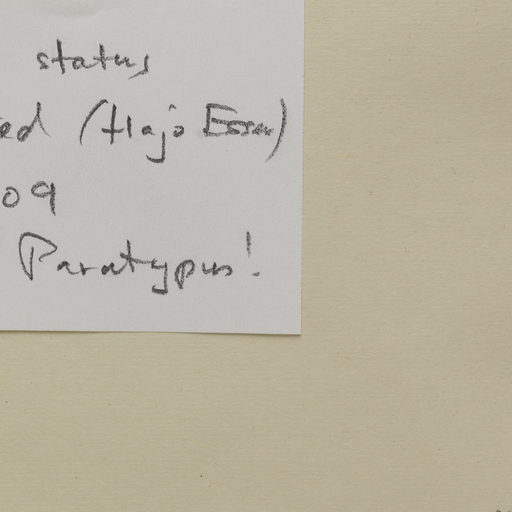 status
ed (Hajo Esser)
09
Paratypus!